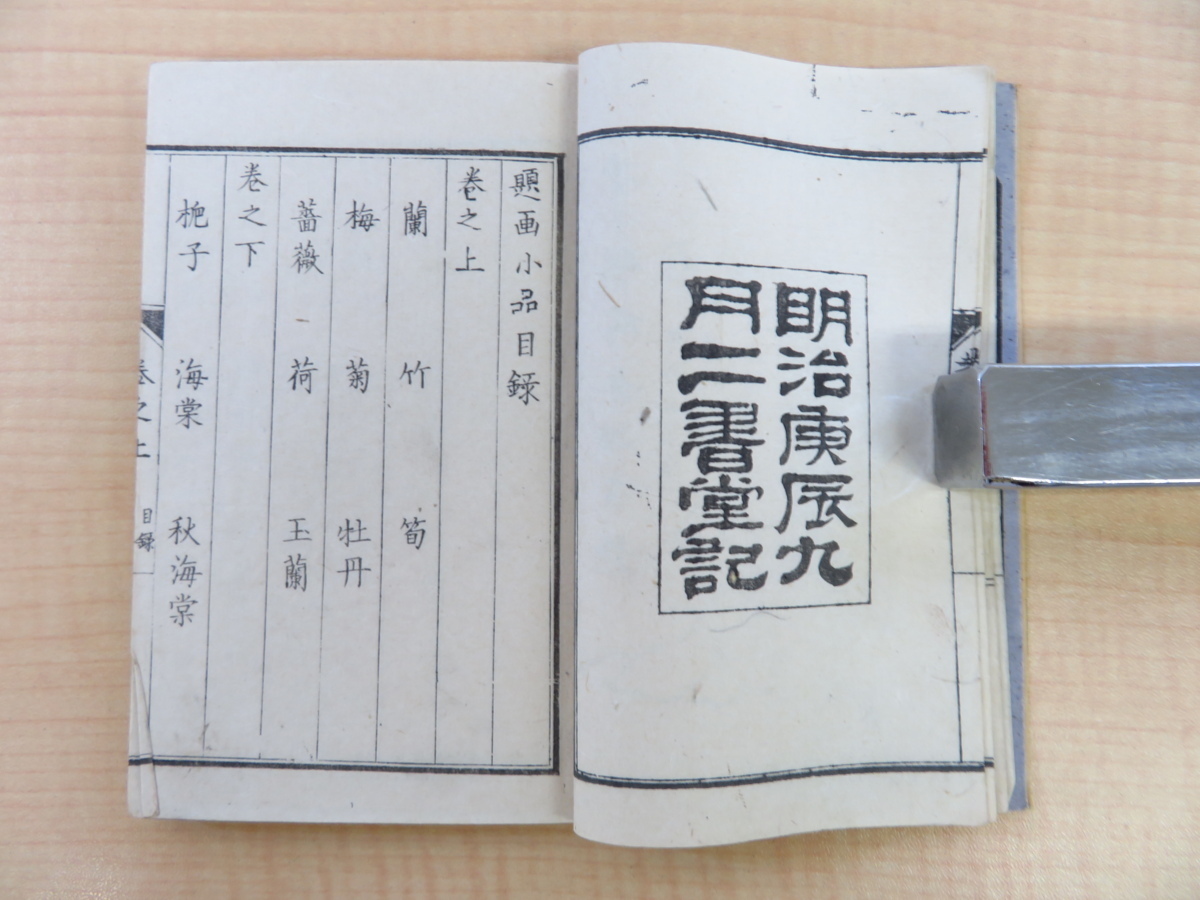 明治庚辰九
月二書堂記
題画小品目録
巻之上
蘭 竹 筍
梅 菊 牡丹
薔薇 荷 玉蘭
巻之下
梔子 海棠 秋海棠
巻之上 目録